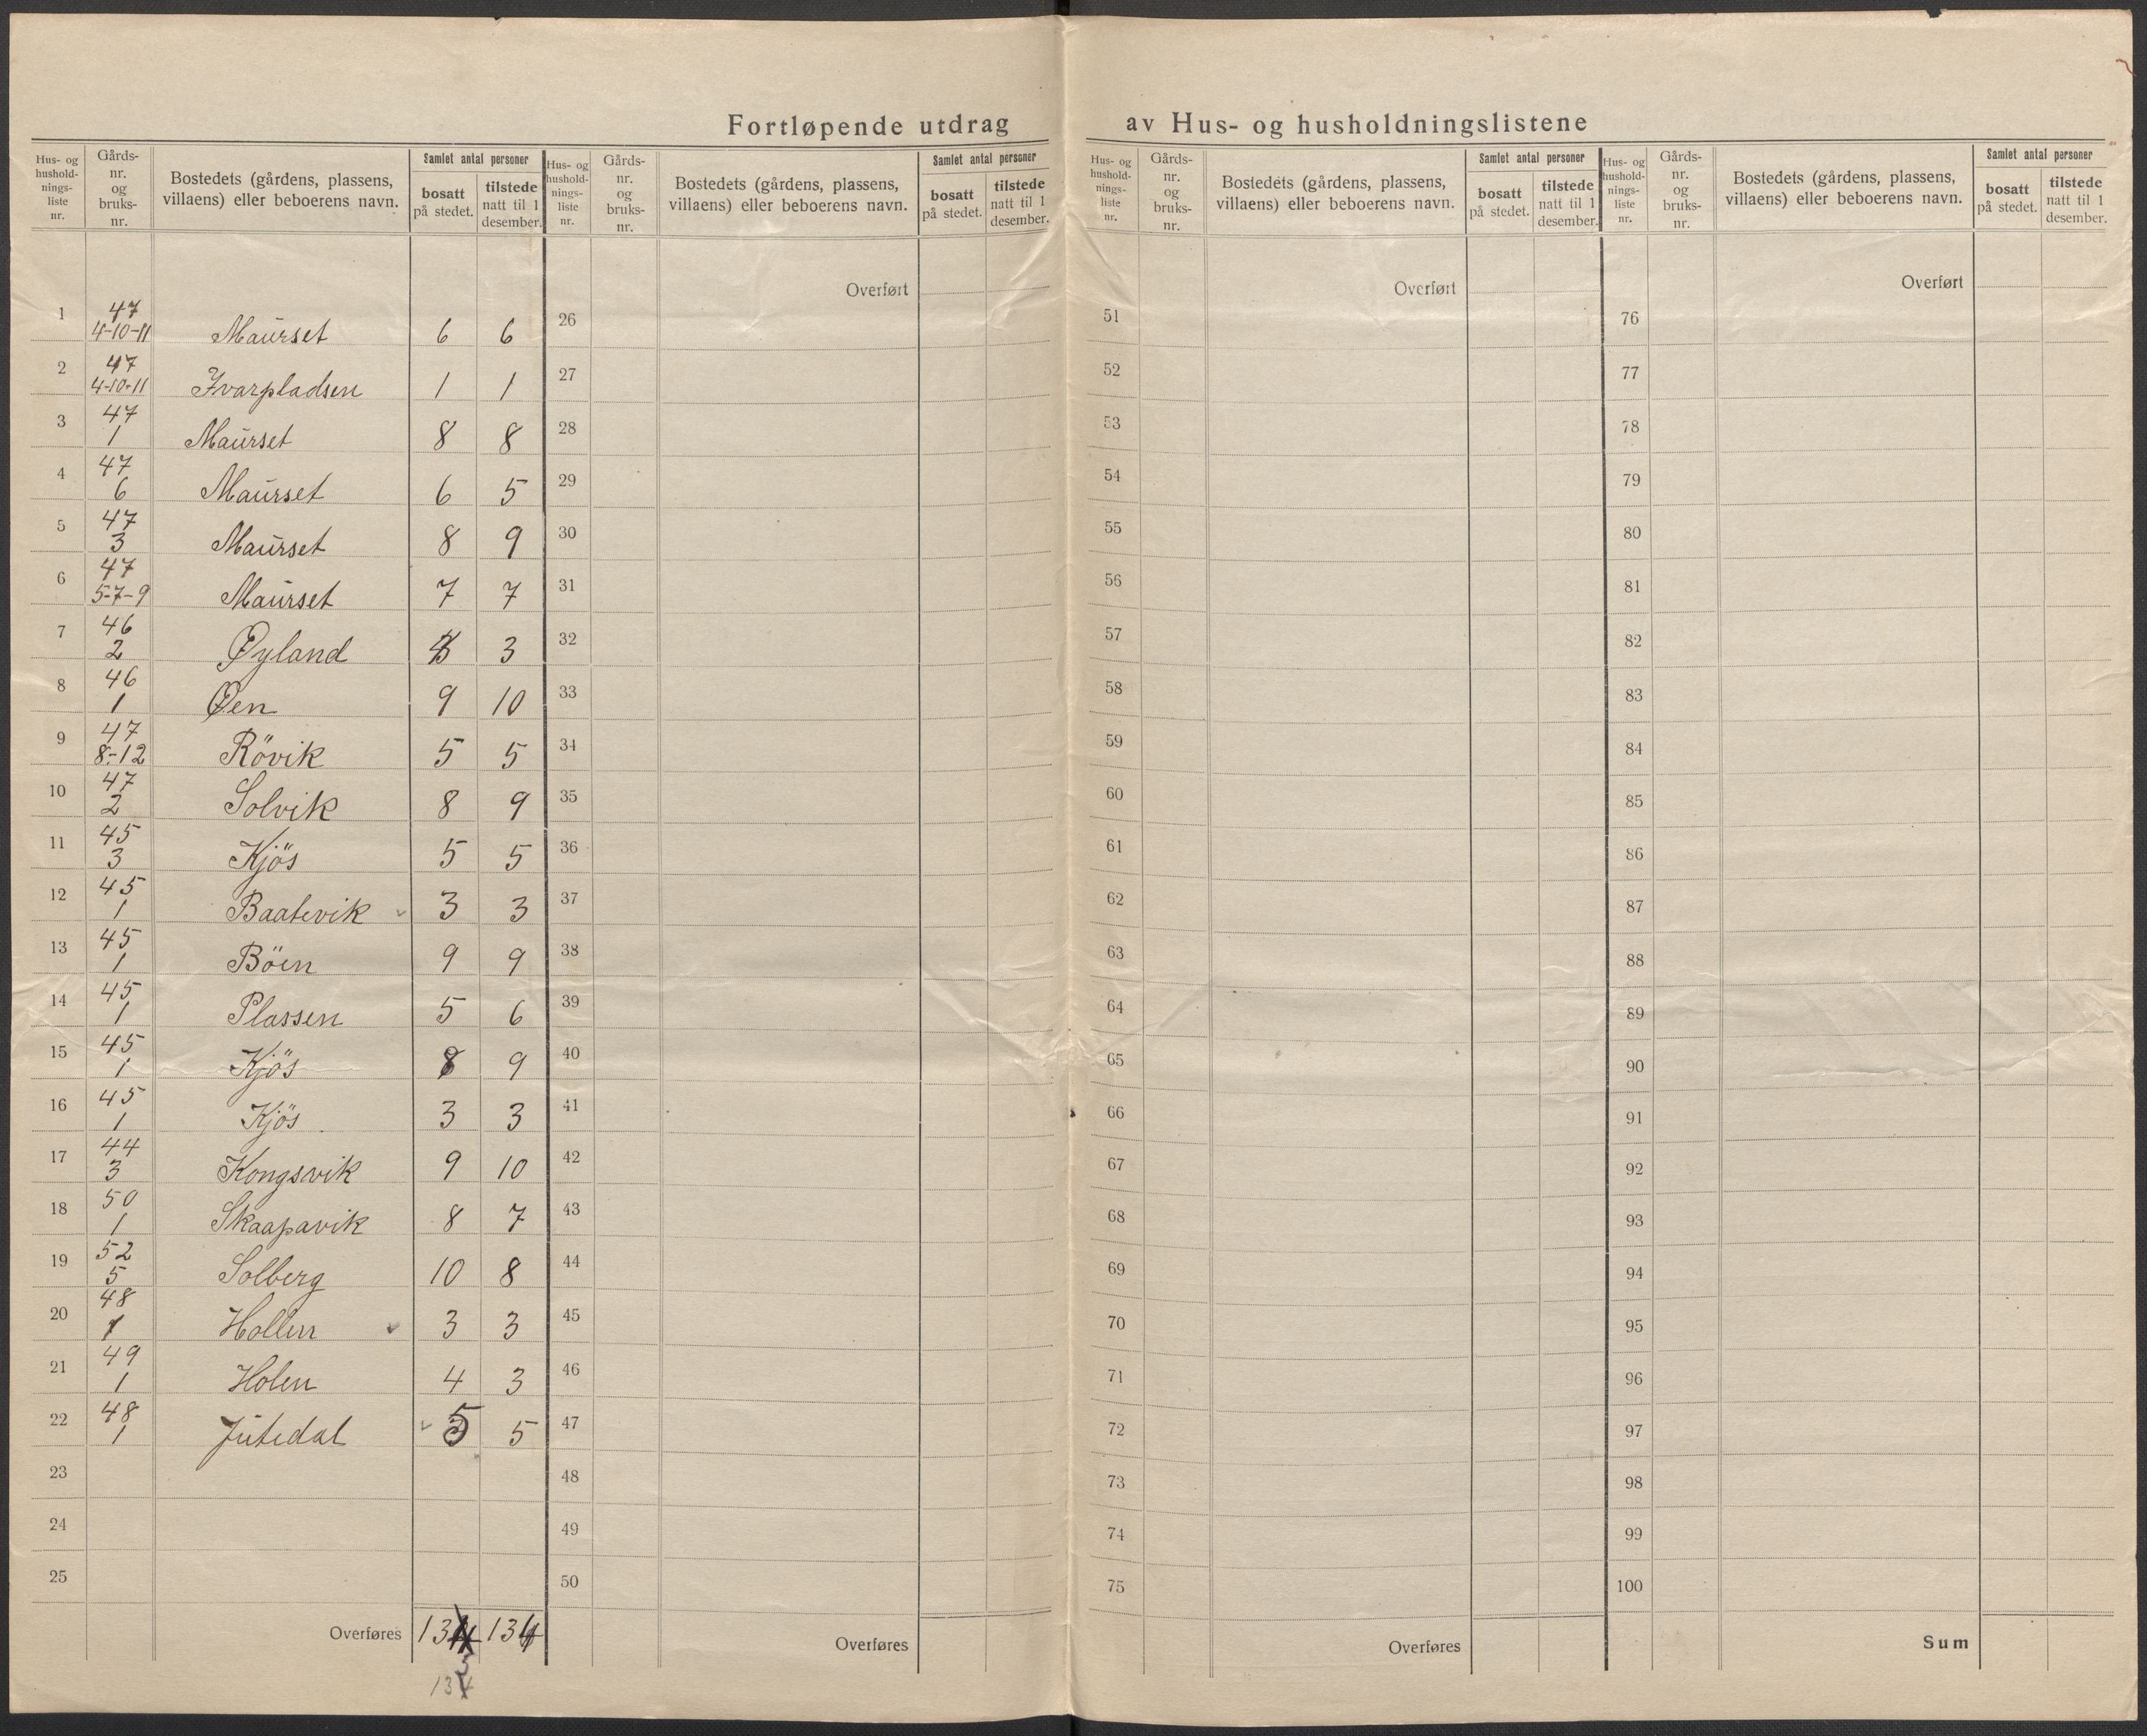 Fortløpende utdrag av Hus- og husholdningslistene
Hus- og hushold-nings-liste nr. | Gårds-nr. og bruks-nr. | Bostedets (gårdens, plassens, villaens) eller beboerens navn. | Samlet antal personer | bosatt på stedet. | tilstede natt til 1 desember.
1 | 47 4-10-11 | Maurset | 6 | 6
2 | 47 4-10-11 | Ivarpladsen | 1 | 1
3 | 47 1 | Maurset | 8 | 8
4 | 47 6 | Maurset | 6 | 5
5 | 47 3 | Maurset | 8 | 9
6 | 47 5-7-9 | Maurset | 7 | 7
7 | 46 2 | Øyland | 3
8 | 46 1 | Øen | 9 | 10
9 | 47 8-12 | Rövik | 5 | 5
10 | 47 2 | Solvik | 8 | 9
11 | 45 3 | Kjös | 5 | 5
12 | 45 1 | Baatevik | 3 | 3
13 | 45 1 | Böen | 9 | 9
14 | 45 1 | Plassen | 5 | 6
15 | 45 1 | Kjös | 8 | 9
16 | 45 1 | Kjös | 3 | 3
17 | 44 3 | Kongsvik | 9 | 10
18 | 50 1 | Skaapavik | 8 | 7
19 | 52 5 | Solberg | 10 | 8
20 | 48 1 | Hollen | 3 | 3
21 | 49 1 | Holen | 4 | 3
22 | 48 1 | Jutedal | 5 | 5
23
24
25
Overføres | 134
Hus- og hushold-nings-liste nr. | Gårds-nr. og bruks-nr. | Bostedets (gårdens, plassens, villaens) eller beboerens navn. | Samlet antal personer | bosatt på stedet. | tilstede natt til 1 desember.
Overført
26
27
28
29
30
31
32
33
34
35
36
37
38
39
40
41
42
43
44
45
46
47
48
49
50
Overføres
Hus- og hushold-nings-liste nr. | Gårds-nr. og bruks-nr. | Bostedets (gårdens, plassens, villaens) eller beboerens navn. | Samlet antal personer | bosatt på stedet. | tilstede natt til 1 desember.
Overført
51
52
53
54
55
56
57
58
59
60
61
62
63
64
65
66
67
68
69
70
71
72
73
74
75
Overføres
Hus- og hushold-nings-liste nr. | Gårds-nr. og bruks-nr. | Bostedets (gårdens, plassens, villaens) eller beboerens navn. | Samlet antal personer | bosatt på stedet. | tilstede natt til 1 desember.
Overført
76
77
78
79
80
81
82
83
84
85
86
87
88
89
90
91
92
93
94
95
96
97
98
99
100
Sum